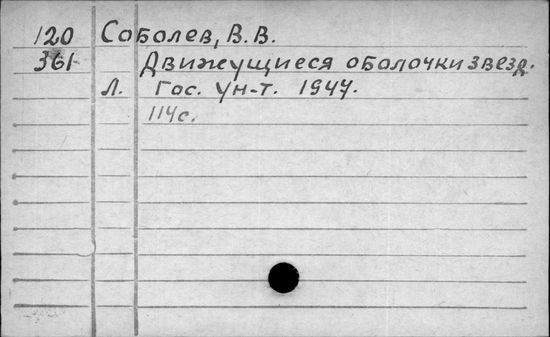 120 Соболев, В. В.
361 Движущиеся оболочки звезд.
Л. Гос. Ун-т. 1947.
114 с.